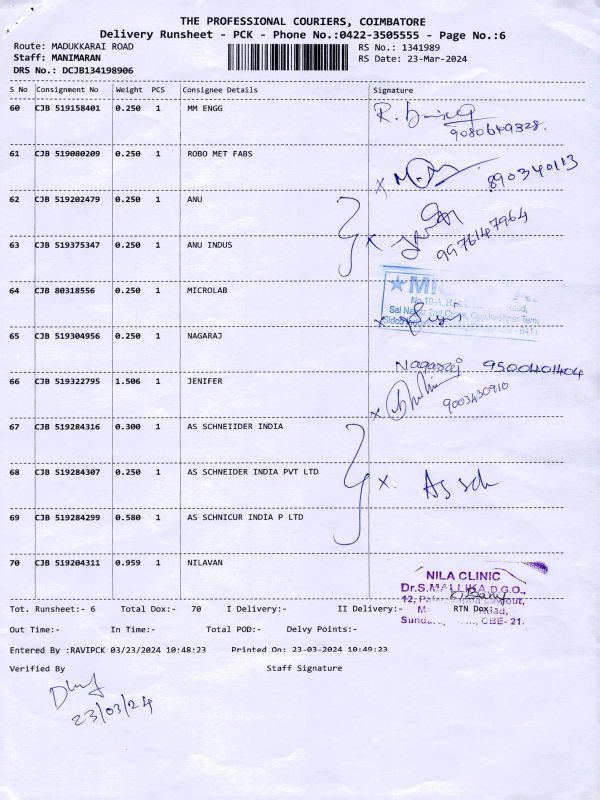 THE PROFESSIONAL COURIERS, COIMBATORE
Delivery Runsheet - PCK - Phone No.:0422-3505555 - Page No.:6
Route: MADUKKARAI ROAD RS No.: 1341989
Staff: MANIMARAN RS Date: 23-Mar-2024
DRS No.: DCJB134198906
S No Consignment No Weight PCS Consignee Details Signature
60 CJB 519158401 0.250 1 MM ENGG
9080649328.
61 CJB 519080209 0.250 1 ROBO MET FABS
62 CJB 519202479 0.250 1 ANU
9976147964
63 CJB 519375347 0.250 1 ANU INDUS
64 CJB 80318556 0.250 1 MICROLAB
65 CJB 519304956 0.250 1 NAGARAJ
Nagaraj 9500401404
66 CJB 519322795 1.506 1 JENIFER
9003430910
67 CJB 519284316 0.300 1 AS SCHNEIIDER INDIA
68 CJB 519284307 0.250 1 AS SCHNEIDER INDIA PVT LTD
As sch
69 CJB 519284299 0.580 1 AS SCHNICUR INDIA P LTD
70 CJB 519204311 0.959 1 NILAVAN
NILA CLINIC
Dr.S.MALLIKA D.G.O.,
Tot. Runsheet:- 6 Total Dox:- 70 I Delivery:- II Delivery:- RTN Dox:
CBE- 21.
Out Time:- In Time:- Total POD:- Delvy Points:-
Entered By :RAVIPCK 03/23/2024 10:48:23 Printed On: 23-03-2024 10:49:23
Verified By Staff Signature
23/03/24